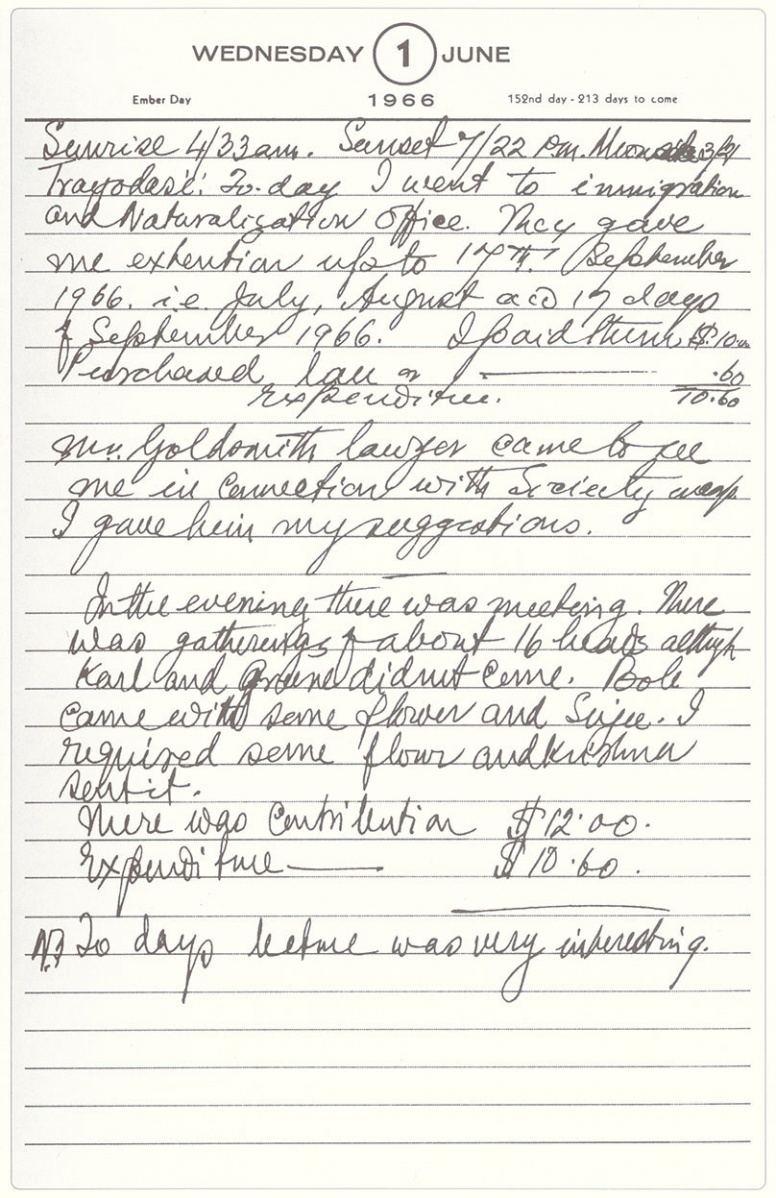 WEDNESDAY 1 JUNE
Ember Day 1966 152nd day - 213 days to come
Sunrise 4/33 am. Sunset 7/22 pm. Moon 3/21
Trayodasi: To-day I went to immigration
and Naturalization Office. They gave
me extention upto 17th. September
1966. i.e. July, August and 17 days
of September 1966. I paid them $10.00
Purchased .60
Expenditure. 10.60
Mr. Goldsmith lawyer came to see
me in connection with Society
I gave him my suggestions.
In the evening there was meeting. There
was gatherings of about 16 heads although
Karl and did not come. Bob
came with some flower and Sujee. I
required some flour and Krishna
sent it.
There was contribution $12.00.
Expenditure — $10.60.
N.B To days lecture was very interesting.